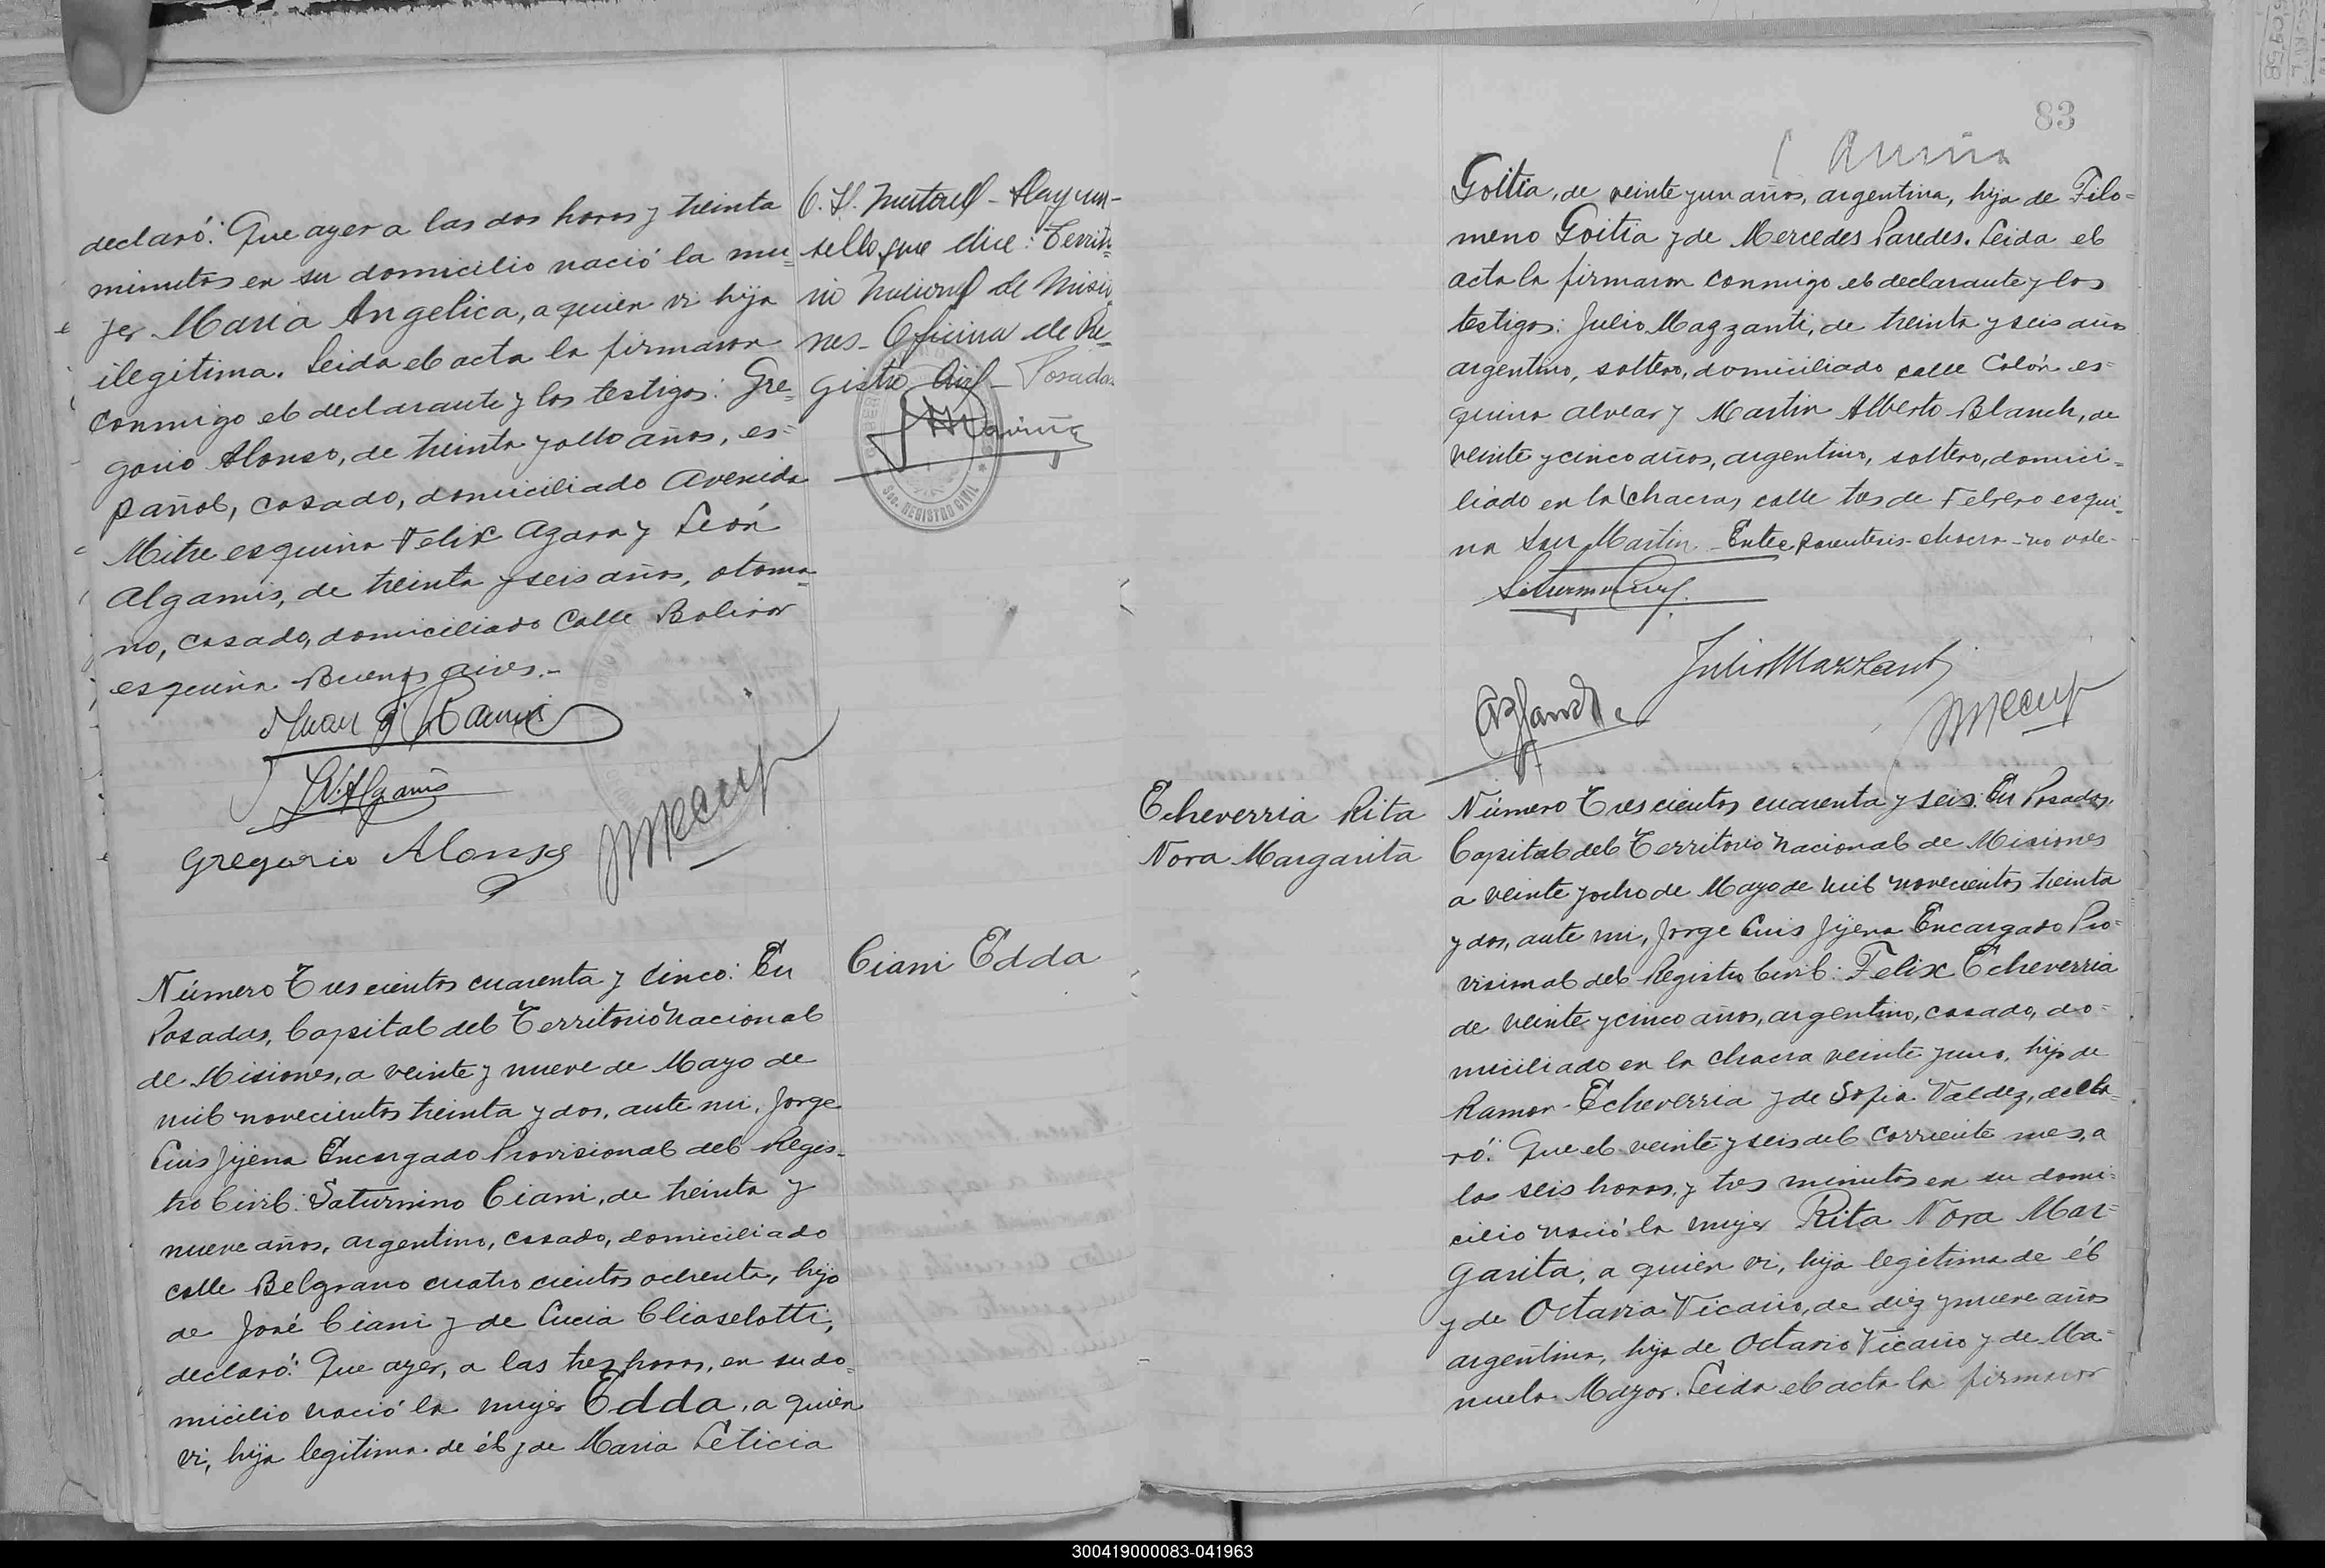 declaró: Que ayer a las dos horas y treinta
minutos en su domicilio nació la mu=
jer Maria Angelica, a quien vi hija
ilegitima. Leida el acta la firmaron
conmigo el declarante y los testigos: Gre=
gorio Alonso, de treinta y ocho años, es=
pañol, casado, domiciliado Avenida
Mitre esquina Felix Azara y León
Algamis, de treinta y seis años, otoma=
no, casado, domiciliado Calle Bolivar
esquina Buenos Aires.-
Juan
L. Algamis
Gregorio Alonso
- Hay un
sello que dice: Territo
rio Nacional de Misio
nes - Oficina de Re=
gistro Civil - Posadas
SEC. REGISTRO CIVIL
Número Trescientos cuarenta y cinco: En
Posadas, Capital del Territorio Nacional
de Misiones, a veinte y nueve de Mayo de
mil novecientos treinta y dos, ante mi, Jorge
Luis Jijena Encargado Provisional del Regis=
tro Civil: Saturnino Ciani, de treinta y
nueve años, argentino, casado, domiciliado
calle Belgrano cuatro cientos ochenta, hijo
de José Ciani y de Lucia
declaró: Que ayer, a las tres horas, en su do=
micilio nació la mujer Edda, a quien
vi, hija legitima de él y de Maria Leticia
Ciani Edda
83
Goitia, de veinte y un años, argentina, hija de Filo=
meno Goitia y de Mercedes Paredes. Leida el
acta la firmaron conmigo el declarante y los
testigos: Julio Mazzanti, de treinta y seis años
argentino, soltero, domiciliado calle Colón es=
quina Alvear y Martin Alberto Blanch, de
veinte y cinco años, argentino, soltero, domici=
liado en la (chacra, calle tres de Febrero esqui=
na San Martin. - Entre parentesis - chacra - no vale.
Julio Mazzanti
Echeverria Rita
Nora Margarita
Número Trescientos cuarenta y seis: En Posadas,
Capital del Territorio Nacional de Misiones
a veinte y ocho de Mayo de mil novecientos treinta
y dos, ante mi, Jorge Luis Jijena Encargado Pro=
visional del Registro Civil: Felix Echeverria
de veinte y cinco años, argentino, casado, do=
miciliado en la chacra veinte y uno, hijo de
Ramon Echeverria y de Sofia Valdez, decla=
ró: Que el veinte y seis del corriente mes, a
las seis horas y tres minutos en su domi=
cilio nació la mujer Rita Nora Mar=
garita, a quien vi, hija legitima de él
y de Octavia Vicario, de diez y nueve años
argentina, hija de Octavio Vicario y de Ma=
nuela Mazor. Leida el acta la firmaron
300419000083-041963